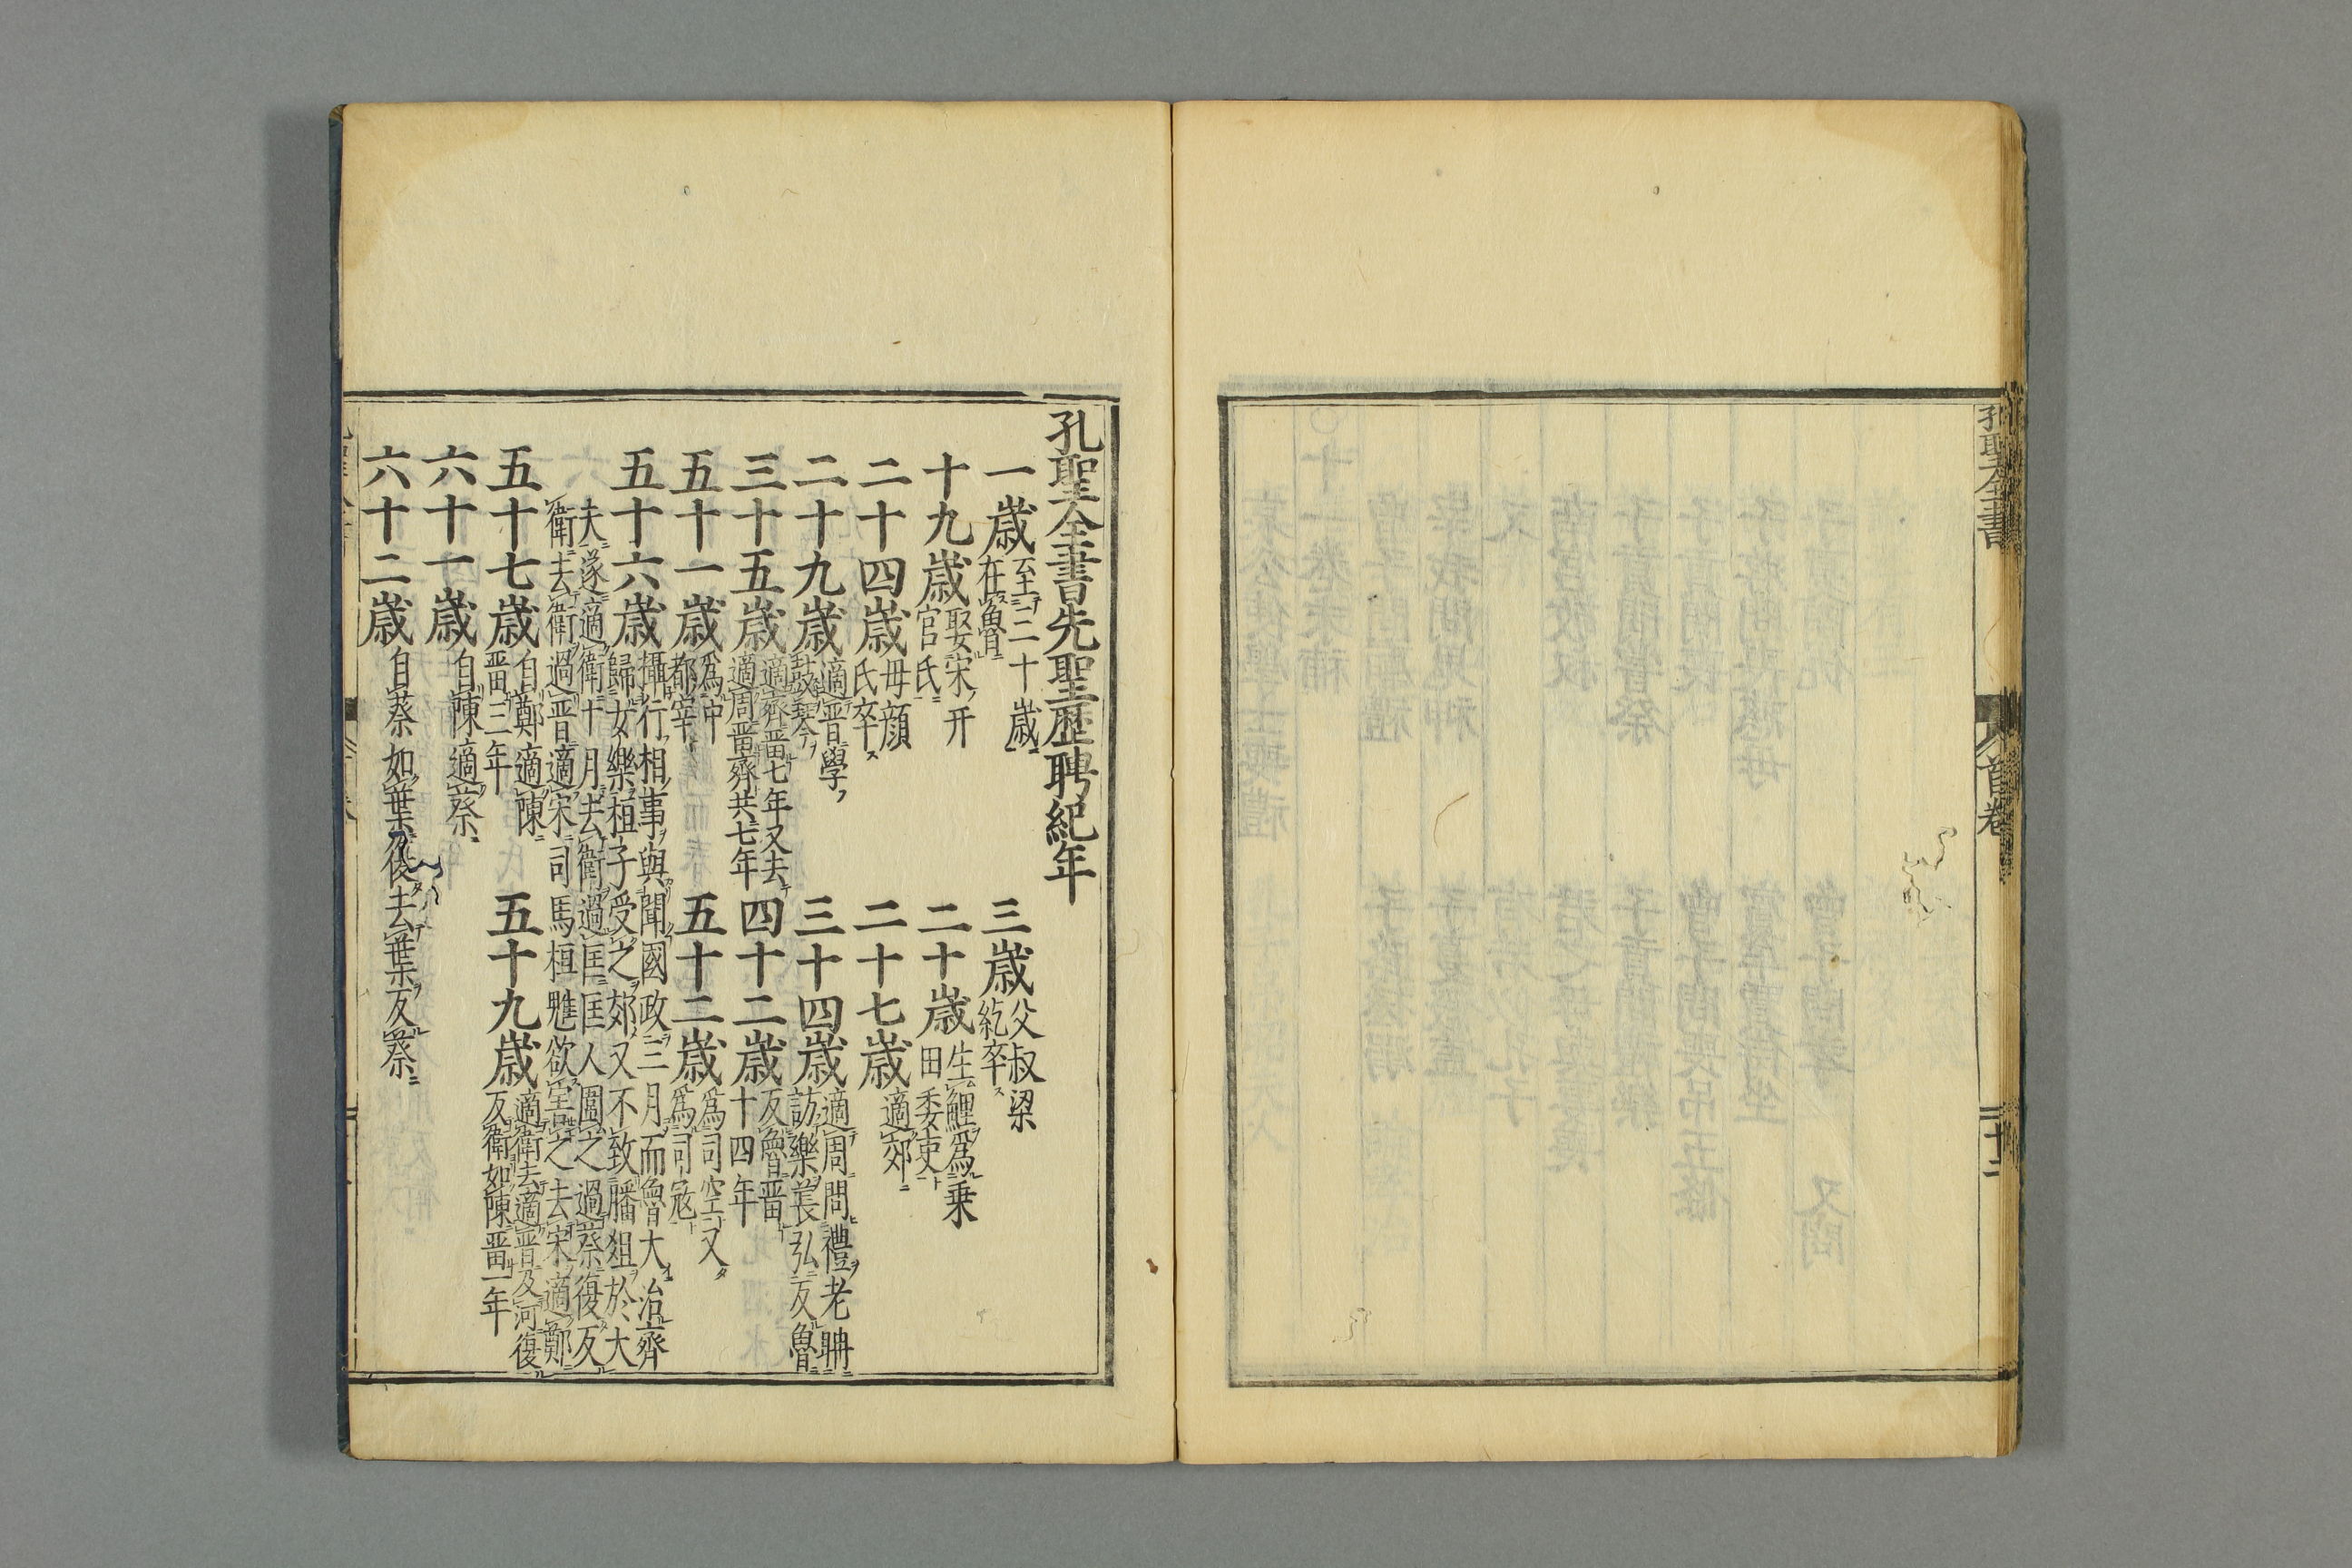 孔聖全書
首卷
二十二
孔聖全書先聖歷聘紀年
一歳 至二十歳在魯
三歳 父叔梁紇卒
十九歳 娶宋开官氏
二十歳 生鯉爲乗田委吏
二十四歳 毋顔氏卒
二十七歳 適郯
二十九歳 適晋學鼓琴
三十四歳 適周問禮老聃訪樂萇弘反魯
三十五歳 適齊畱七年又去適周畱齊共七年
四十二歳 反魯畱十四年
五十一歳 爲中都宰
五十二歳 爲司空又爲司寇
五十六歳 攝行相事與聞國政三月而魯大治齊歸女樂桓子受之郊又不致膰俎於大
夫遂適衛十月去衛過匡匡人圍之過蔡復反衛去衛過晋適宋司馬桓魋欲害之去宋適鄭
五十七歳 自鄭適陳畱三年
五十九歳 適衛去適晋及河復反衛如陳畱一年
六十一歳 自陳適蔡
六十二歳 自蔡如葉乃後去葉反蔡